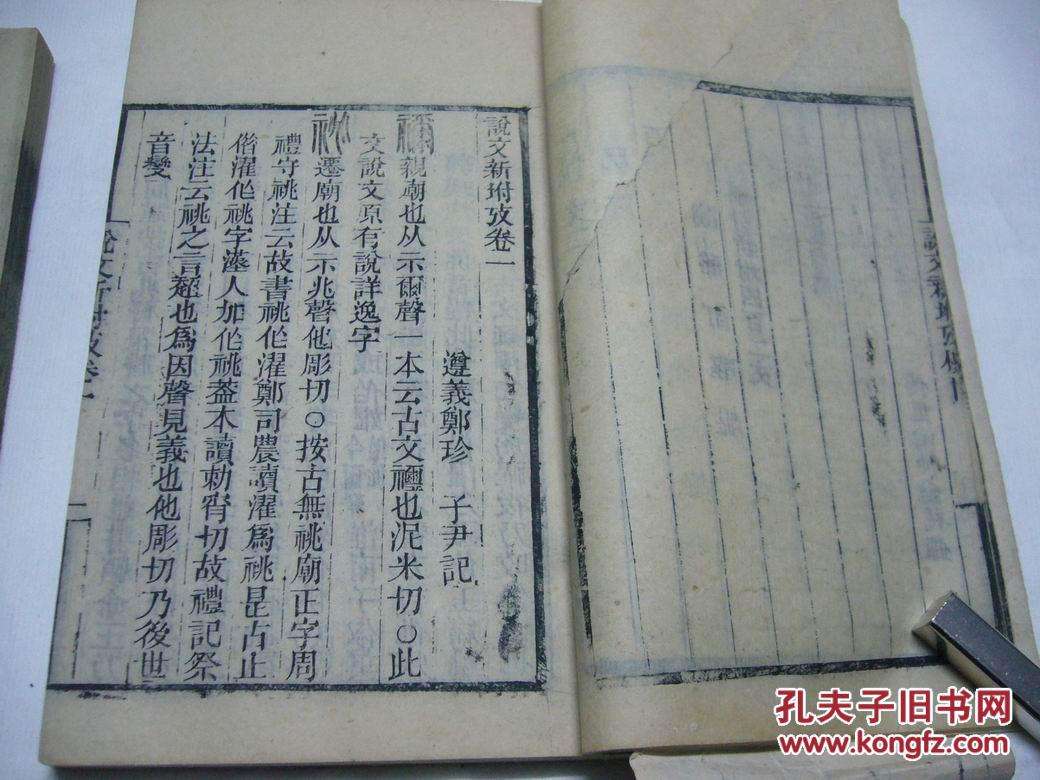 說文新坿攷卷一
遵義鄭珍 子尹記
禰親廟也从示爾聲一本云古文禰也泥米切○此
文說文原有說詳逸字
祧遷廟也从示兆聲他彫切○按古無祧廟正字周
禮守祧注云故書祧作濯鄭司農讀濯爲祧是古止
借濯作祧字漢人加作祧葢本讀勅宵切故禮記祭
法注云祧之言超也爲因聲見義也他彫切乃後世
音變
說文新坿攷卷一
一
孔夫子旧书网
www.kongfz.com